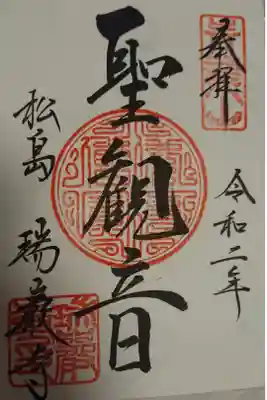 奉拝
令和二年
聖観音
松島 瑞巌寺